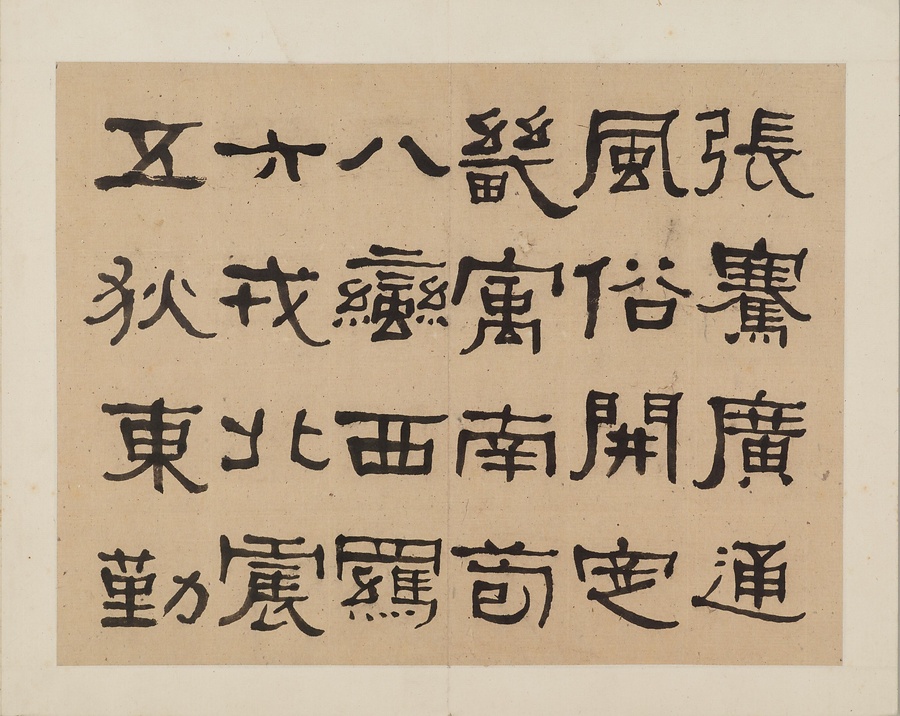 張騫廣通
風俗開定
畿寓南苞
八蠻西羈
六戎北震
五狄東勤